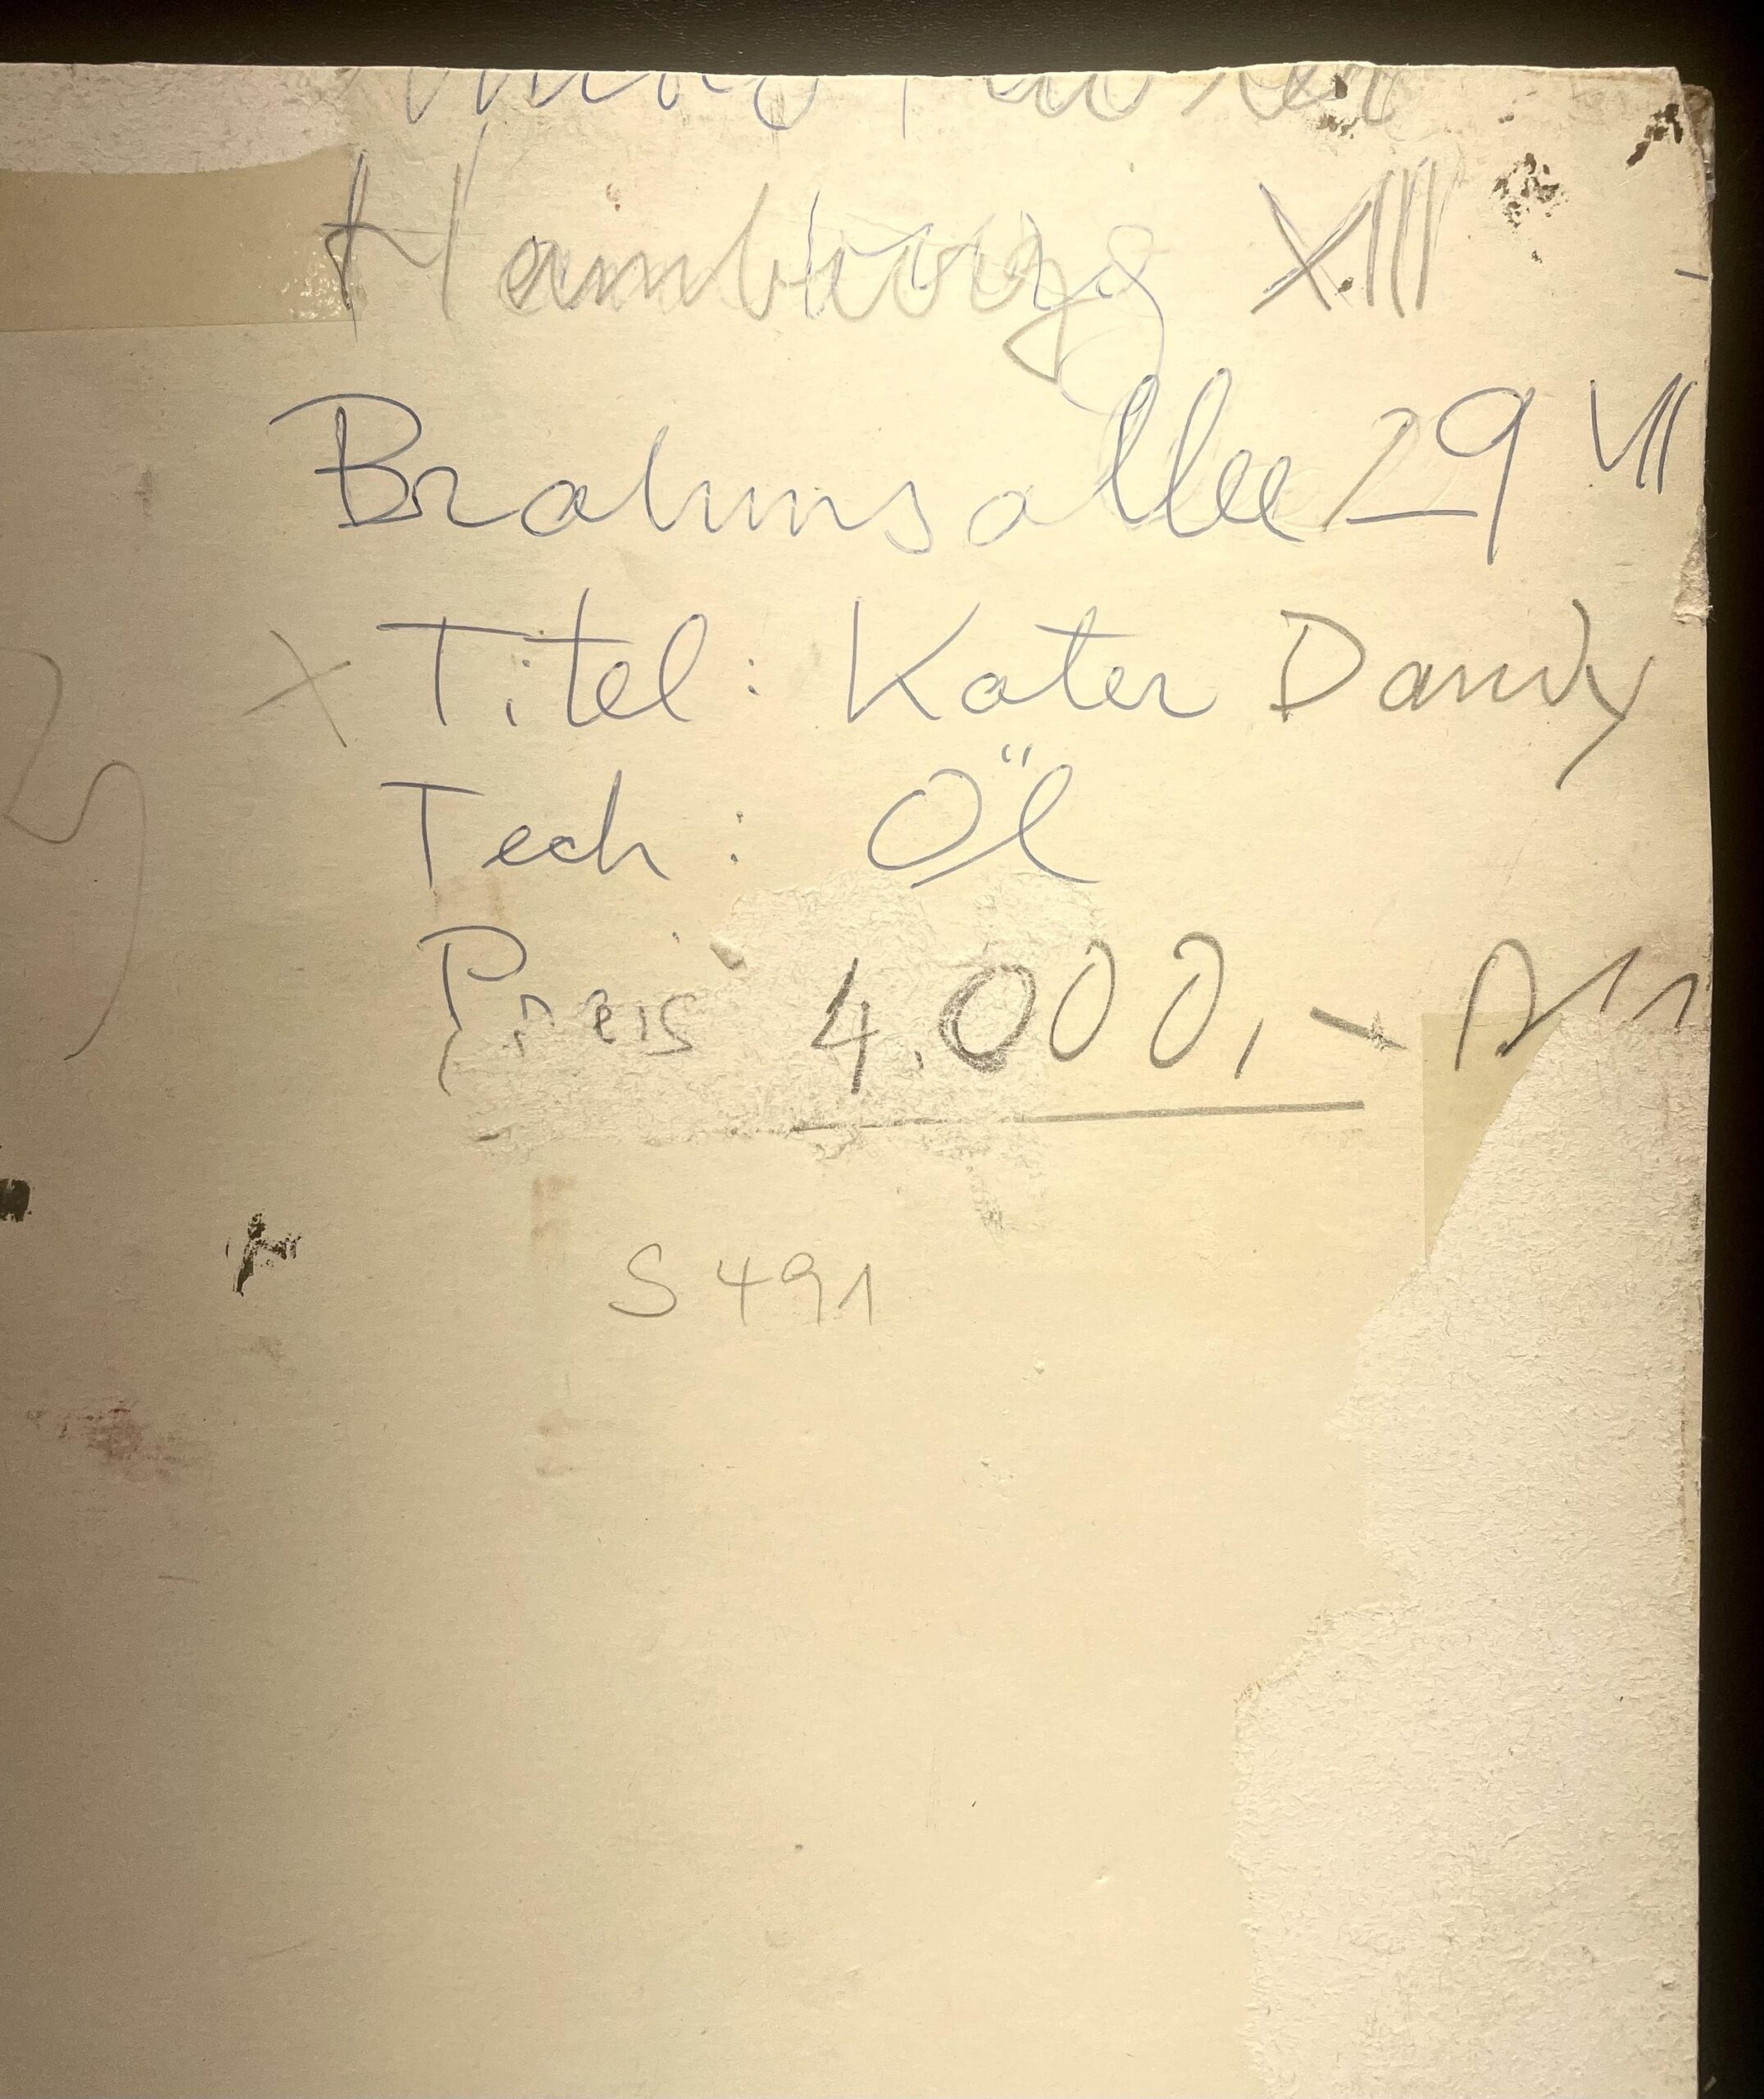 Hamburg XIII
Brahmsallee 29 VII
x Titel: Kater Dandy
Tech: Öl
Preis 4.000,- DM
S 491